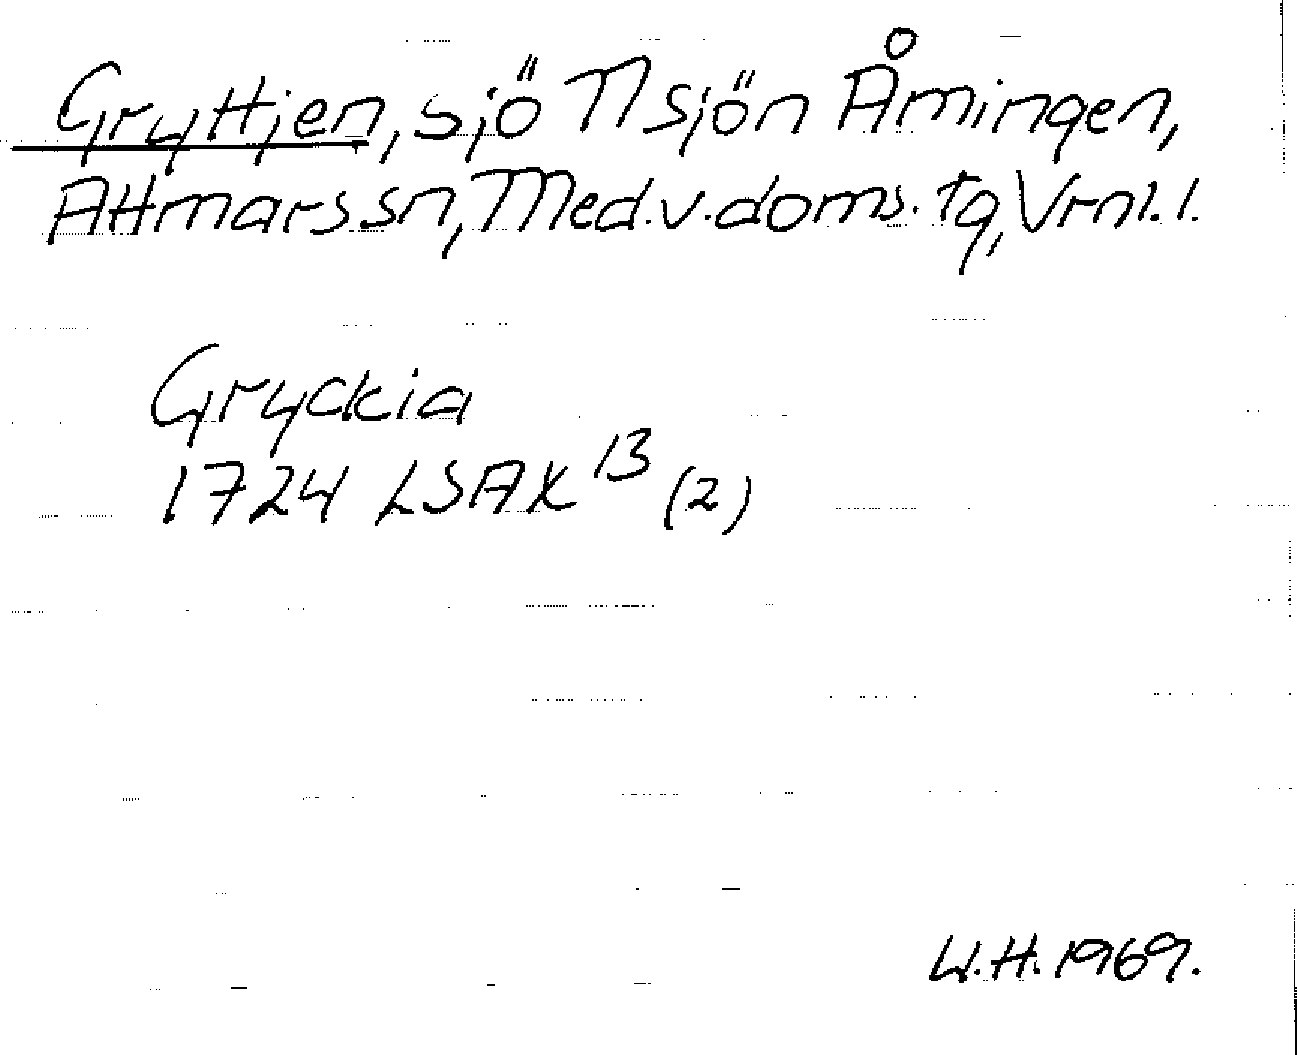 Gryttjen, sjö N sjön Åmingen,
Attmars sn, Med.v.doms.tg, Vrnl. l.
Gryckia
1724 LSA X 13 (2)
W.H. 1969.